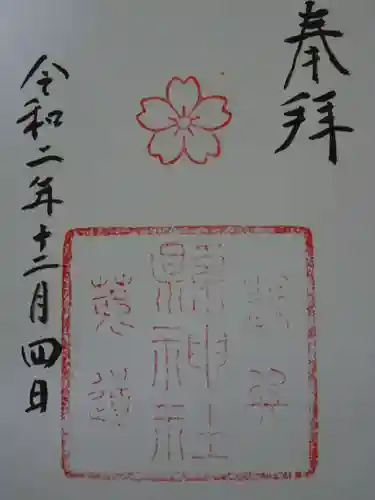 奉拝
縣神社
令和二年十二月四日